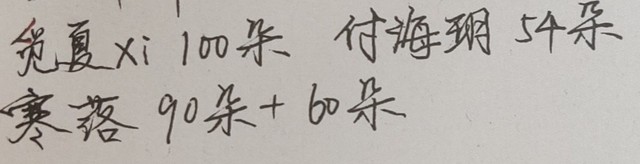 觅夏xi 100朵 付海玥 54朵
寒落 90朵+60朵